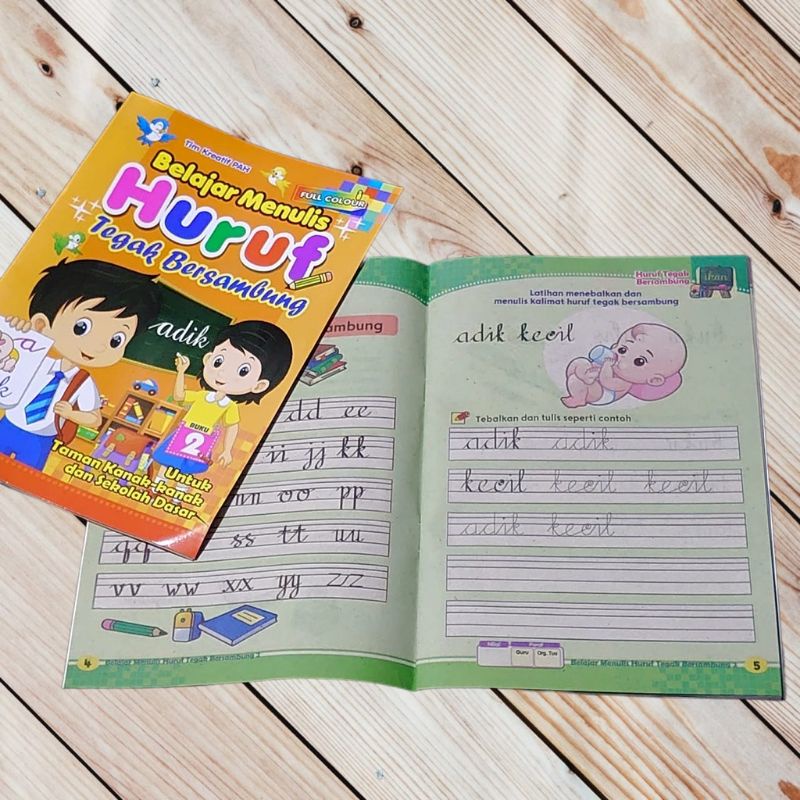 Tim Kreatif PAH
Belajar Menulis
FULL COLOUR
Huruf
Tegak Bersambung
adik
a
k
BUKU
2
Untuk
Taman Kanak-kanak
dan Sekolah Dasar
dd ee
jj kk
nn oo pp
qq ss tt uu
vv ww xx yy zz
4 Belajar Menulis Huruf Tegak Bersambung 2
Huruf Tegak
Bersambung
ikan
Latihan menebalkan dan
menulis kalimat huruf tegak bersambung
adik kecil
Tebalkan dan tulis seperti contoh
adik adik
kecil kecil kecil
adik kecil
Nilai Paraf
Guru Org. Tua
Belajar Menulis Huruf Tegak Bersambung 2 5